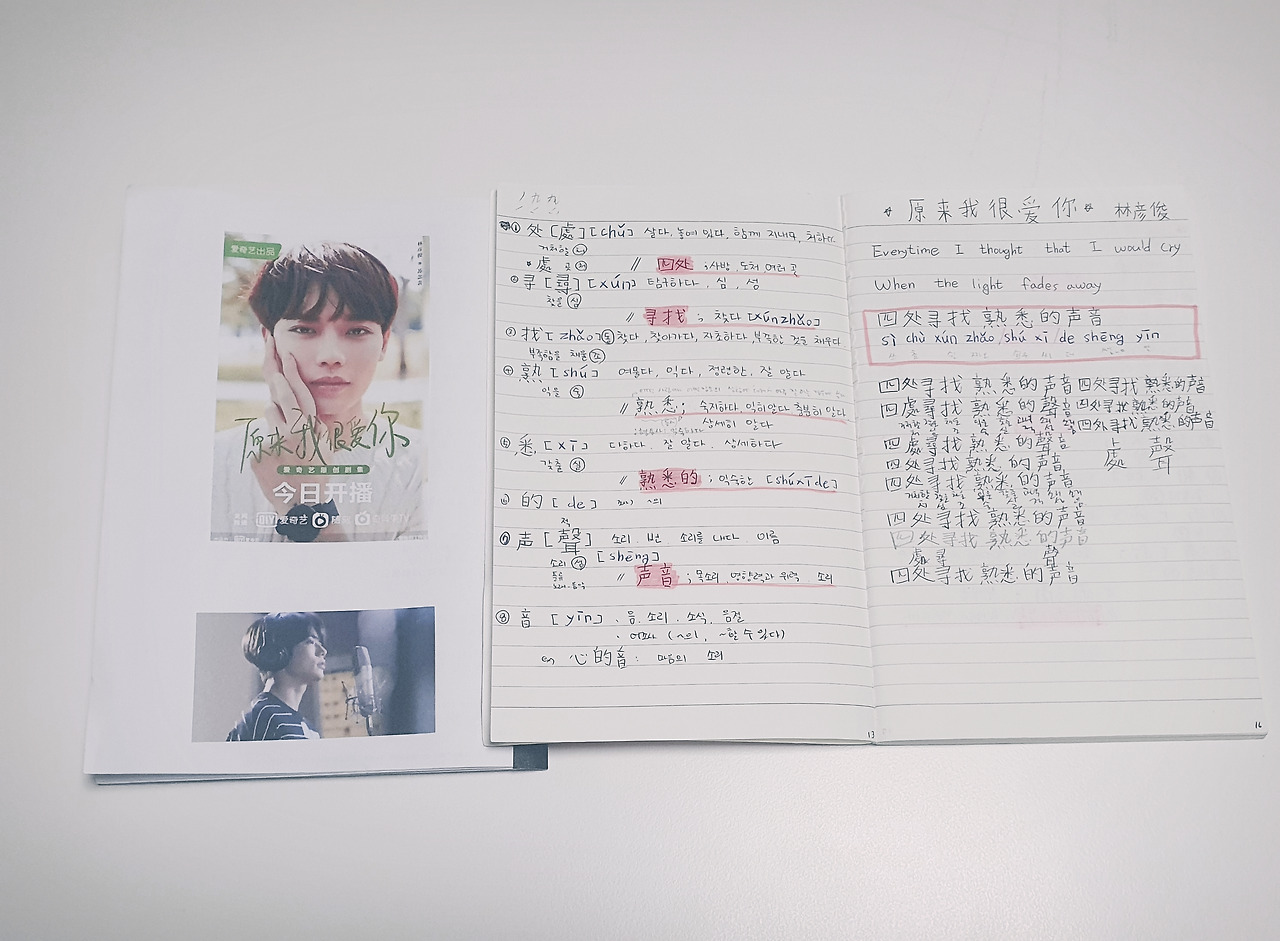 爱奇艺出品
原来我很爱你
爱奇艺原创剧集
今日开播
iQIYI 爱奇艺 随刻
一九九
① 处[處][chǔ] 살다, 놓여 있다, 함께 지내다, 처하다
거처할 ㉡
* 處 곳 // 四处 ; 사방, 도처, 여러 곳
② 寻[尋][xún] 탐구하다, 심, 성
찾을 ㉦
// 寻找 ; 찾다 [xúnzhǎo]
③ 找[zhǎo] 찾다, 찾아가다, 자초하다, 부족한 것을 채우다
부족함을 채울
④ 熟[shú] 여물다, 익다, 정련한, 잘 알다
익을 ㉦
// 熟悉 ; 숙지하다, 익히알다, 충분히 알다
상세히 알다
⑤ 悉[xī] 다하다, 잘 알다, 상세하다
갖출 ㉦
// 熟悉的 ; 익숙한 [shúxīde]
⑥ 的[de] ~의
적
⑦ 声[聲] 소리 · 번 · 소리를 내다 · 이름
소리 [shēng]
// 声音 ; 목소리, 영향력과 위력, 소리
⑧ 音[yīn] · 음, 소리, 소식, 음절
· 어조사 (~의, ~할 수 있다)
ex 心的音 : 마음의 소리
13
* 原来我很爱你 * 林彦俊
Everytime I thought that I would cry
When the light fades away
四处寻找熟悉的声音
sì chù xún zhǎo shú xī de shēng yīn
四处寻找熟悉的声音 四处寻找熟悉的声音
四處尋找熟悉的聲音 四处寻找熟悉的声音
四处寻找熟悉的声音
四處尋找熟悉的聲音 處 聲
四处寻找熟悉的声音
四处寻找熟悉的声音
四处寻找熟悉的声音
四处寻找熟悉的声音
處 尋 聲
四处寻找熟悉的声音